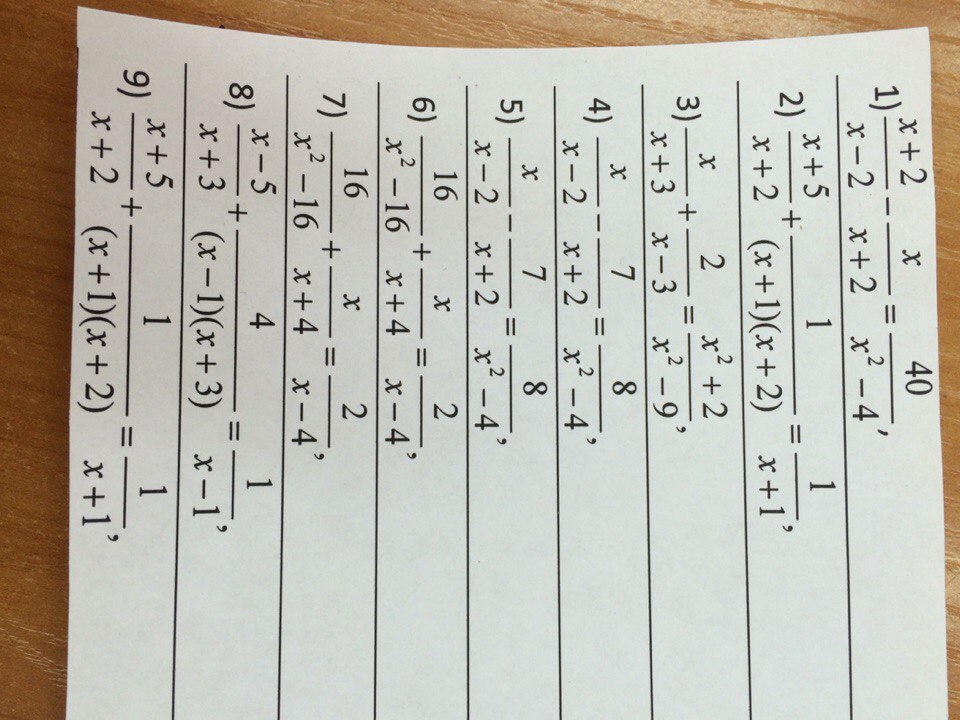 1) (x+2)/(x−2) − x/(x+2) = 40/(x²−4),
2) (x+5)/(x+2) + 1/((x+1)(x+2)) = 1/(x+1),
3) x/(x+3) + 2/(x−3) = (x²+2)/(x²−9),
4) x/(x−2) − 7/(x+2) = 8/(x²−4),
5) x/(x−2) − 7/(x+2) = 8/(x²−4),
6) 16/(x²−16) + x/(x+4) = 2/(x−4),
7) 16/(x²−16) + x/(x+4) = 2/(x−4),
8) (x−5)/(x+3) + 4/((x−1)(x+3)) = 1/(x−1),
9) (x+5)/(x+2) + 1/((x+1)(x+2)) = 1/(x+1),